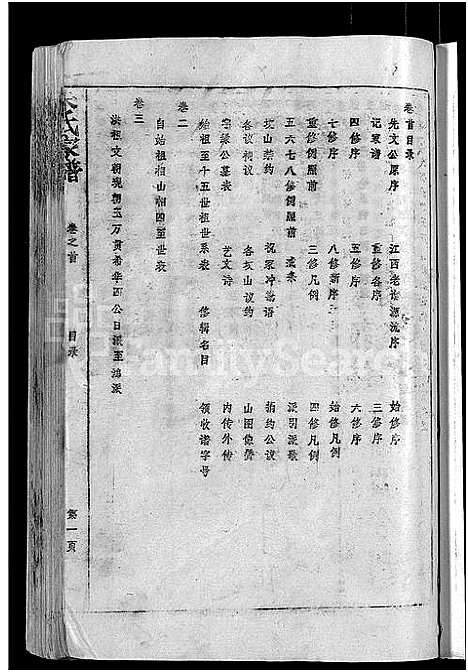 卷首目录
先文公原序 江西老谱源流序 始修序
记家谱 重修各序 三修序
四修序 五修序 六修序
七修序 八修新序 始修凡例
重修例照前 三修凡例 四修凡例
五六七八修例照前 远来 派引派歌
坟山禁约 祝家冲 捐约公议
各议 各坟山议约 山图像赞
公墓表 艺文诗 内传外传
始祖至十五世祖世系表 修辑名目 领收谱字号
卷二
自始祖相山相四至世表
卷三
洪祖文朝现朝玉万贯希华四公日派至鸿派
氏家谱
卷之首
目录
第一页
familysearch